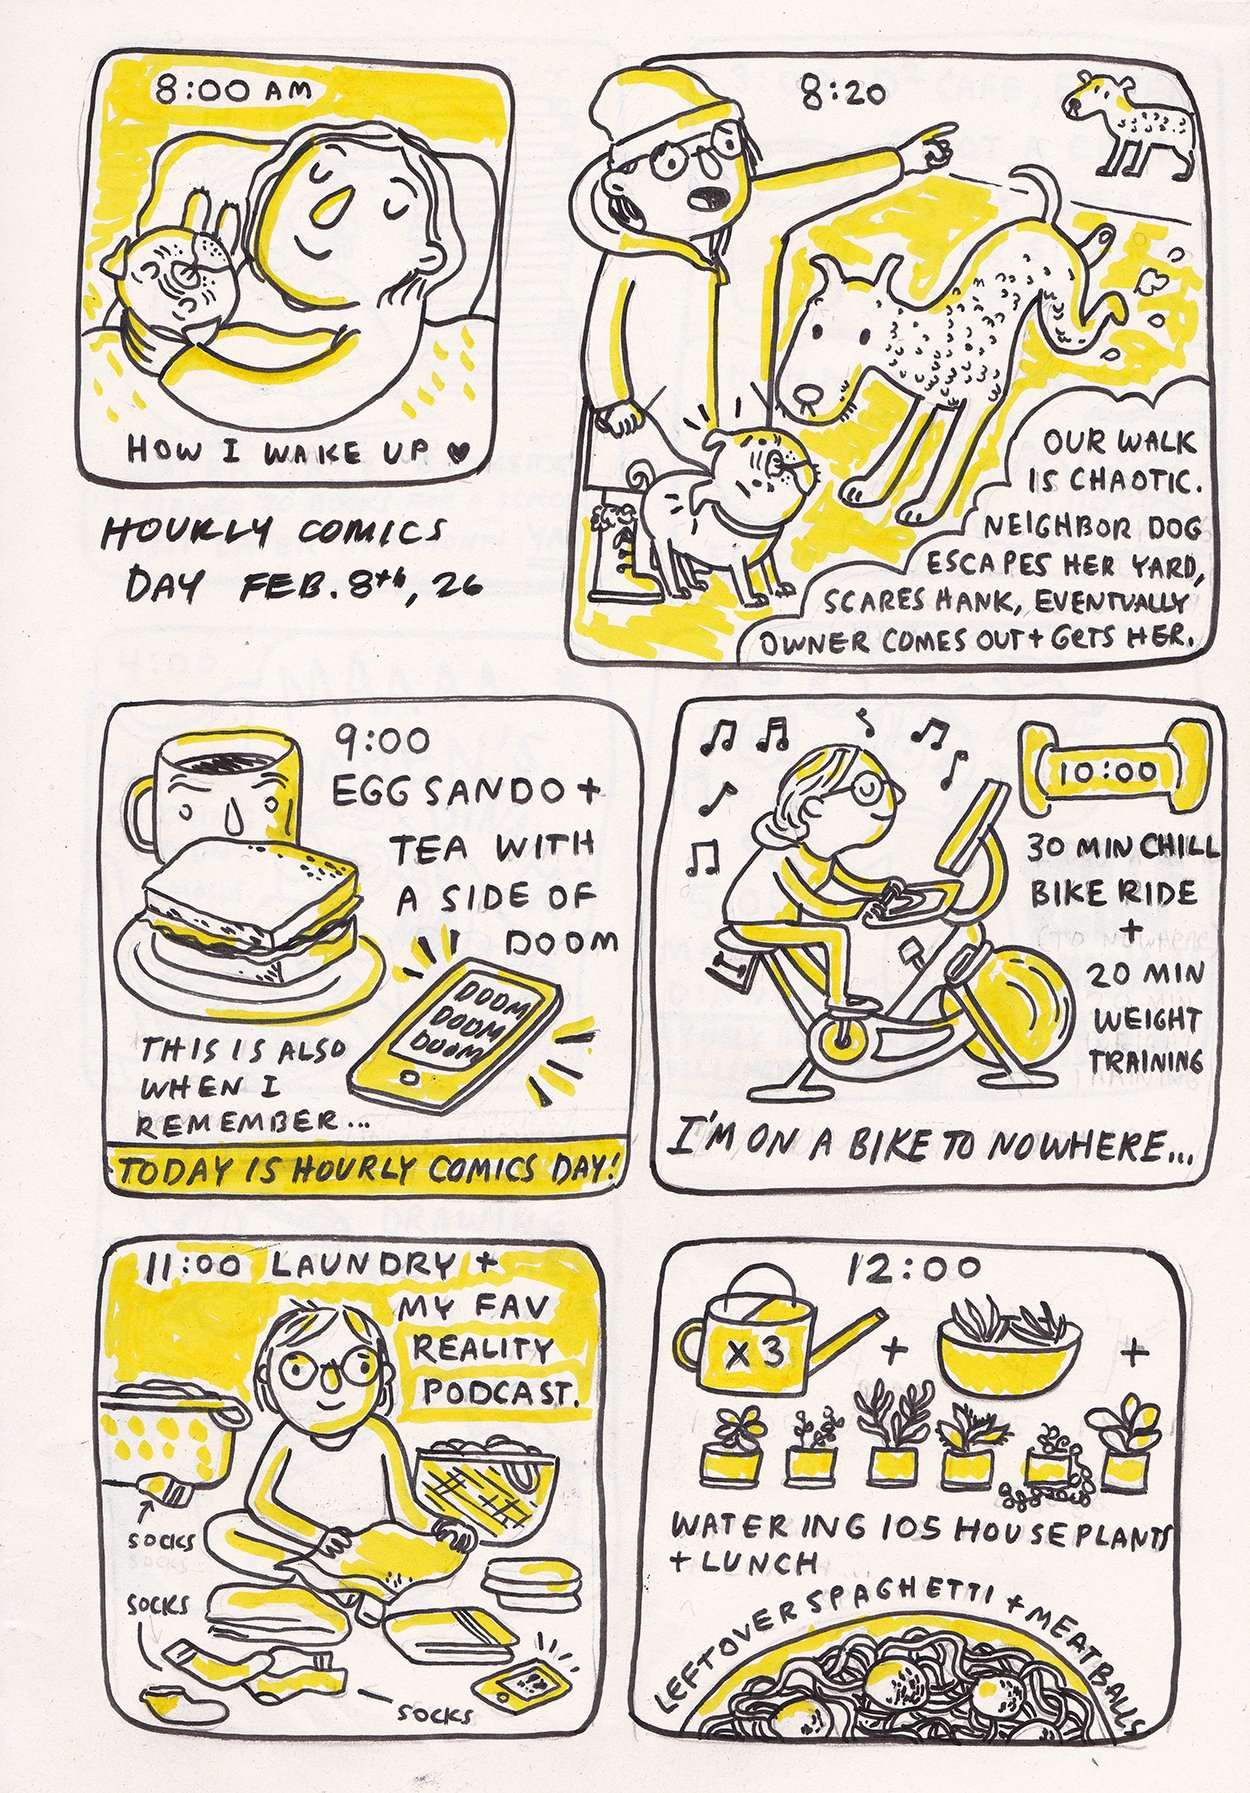 8:00 AM
HOW I WAKE UP ♥
HOURLY COMICS
DAY FEB. 8th, 26
8:20
OUR WALK
IS CHAOTIC.
NEIGHBOR DOG
ESCAPES HER YARD,
SCARES HANK, EVENTUALLY
OWNER COMES OUT + GETS HER.
9:00
EGG SANDO +
TEA WITH
A SIDE OF
DOOM
DOOM
DOOM
DOOM
THIS IS ALSO
WHEN I
REMEMBER...
TODAY IS HOURLY COMICS DAY!
10:00
30 MIN CHILL
BIKE RIDE
+
20 MIN
WEIGHT
TRAINING
I'M ON A BIKE TO NOWHERE...
11:00 LAUNDRY +
MY FAV
REALITY
PODCAST.
SOCKS
SOCKS
SOCKS
12:00
X 3
+
+
WATERING 105 HOUSEPLANTS
+ LUNCH
LEFTOVER SPAGHETTI + MEATBALLS